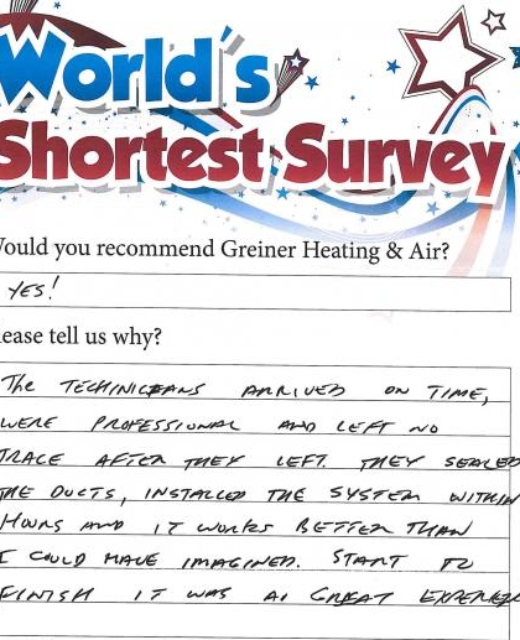 World's
Shortest Survey
Would you recommend Greiner Heating & Air?
YES!
lease tell us why?
The TECHINICEANS ARRIVED ON TIME,
WERE PROFESSIONAL AND LEFT NO
TRACE AFTER THEY LEFT. THEY SEALED
THE DUCTS, INSTALLED THE SYSTEM WITHIN
HOURS AND IT WORKS BETTER THAN
I COULD HAVE IMAGINED. START TO
FINISH IT WAS A GREAT EXPERIE